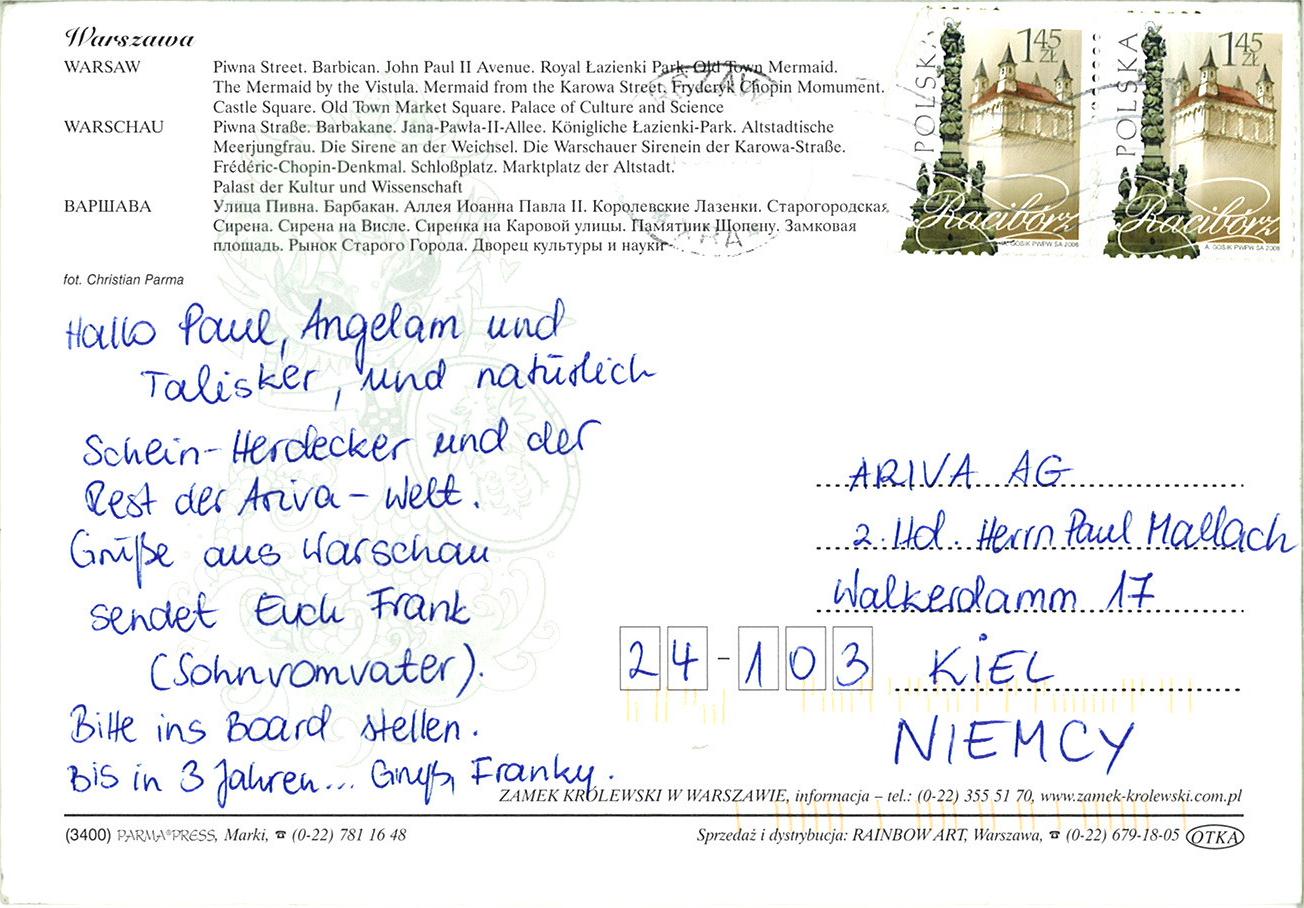 Warszawa
WARSAW Piwna Street. Barbican. John Paul II Avenue. Royal Łazienki Park. Old Town Mermaid.
The Mermaid by the Vistula. Mermaid from the Karowa Street. Fryderyk Chopin Monument.
Castle Square. Old Town Market Square. Palace of Culture and Science
WARSCHAU Piwna Straße. Barbakane. Jana-Pawła-II-Allee. Königliche Łazienki-Park. Altstadtische
Meerjungfrau. Die Sirene an der Weichsel. Die Warschauer Sirenein der Karowa-Straße.
Frédéric-Chopin-Denkmal. Schloßplatz. Marktplatz der Altstadt.
Palast der Kultur und Wissenschaft
ВАРШАВА Улица Пивна. Барбакан. Аллея Иоанна Павла II. Королевские Лазенки. Старогородская
Сирена. Сирена на Висле. Сиренка на Каровой улицы. Памятник Шопену. Замковая
площадь. Рынок Старого Города. Дворец культуры и науки
fot. Christian Parma
POLSKA
1 45 ZŁ
Racibórz
A. GOSIK PWPW SA 2006
POLSKA
1 45 ZŁ
Racibórz
A. GOSIK PWPW SA 2006
Hallo Paul, Angelam und
Talisker, und natürlich
Schein-Herdecker und der
Rest der Ariva-Welt.
Grüße aus Warschau
sendet Euch Frank
(Sohnvomvater).
Bitte ins Board stellen.
Bis in 3 Jahren... Gruß, Franky.
ARIVA AG
z. Hd. Herrn Paul Mallach
Walkerdamm 17
24-103 KIEL
NIEMCY
ZAMEK KRÓLEWSKI W WARSZAWIE, informacja – tel.: (0-22) 355 51 70, www.zamek-krolewski.com.pl
(3400) PARMA®PRESS, Marki, ☎ (0-22) 781 16 48
Sprzedaż i dystrybucja: RAINBOW ART, Warszawa, ☎ (0-22) 679-18-05 OTKA